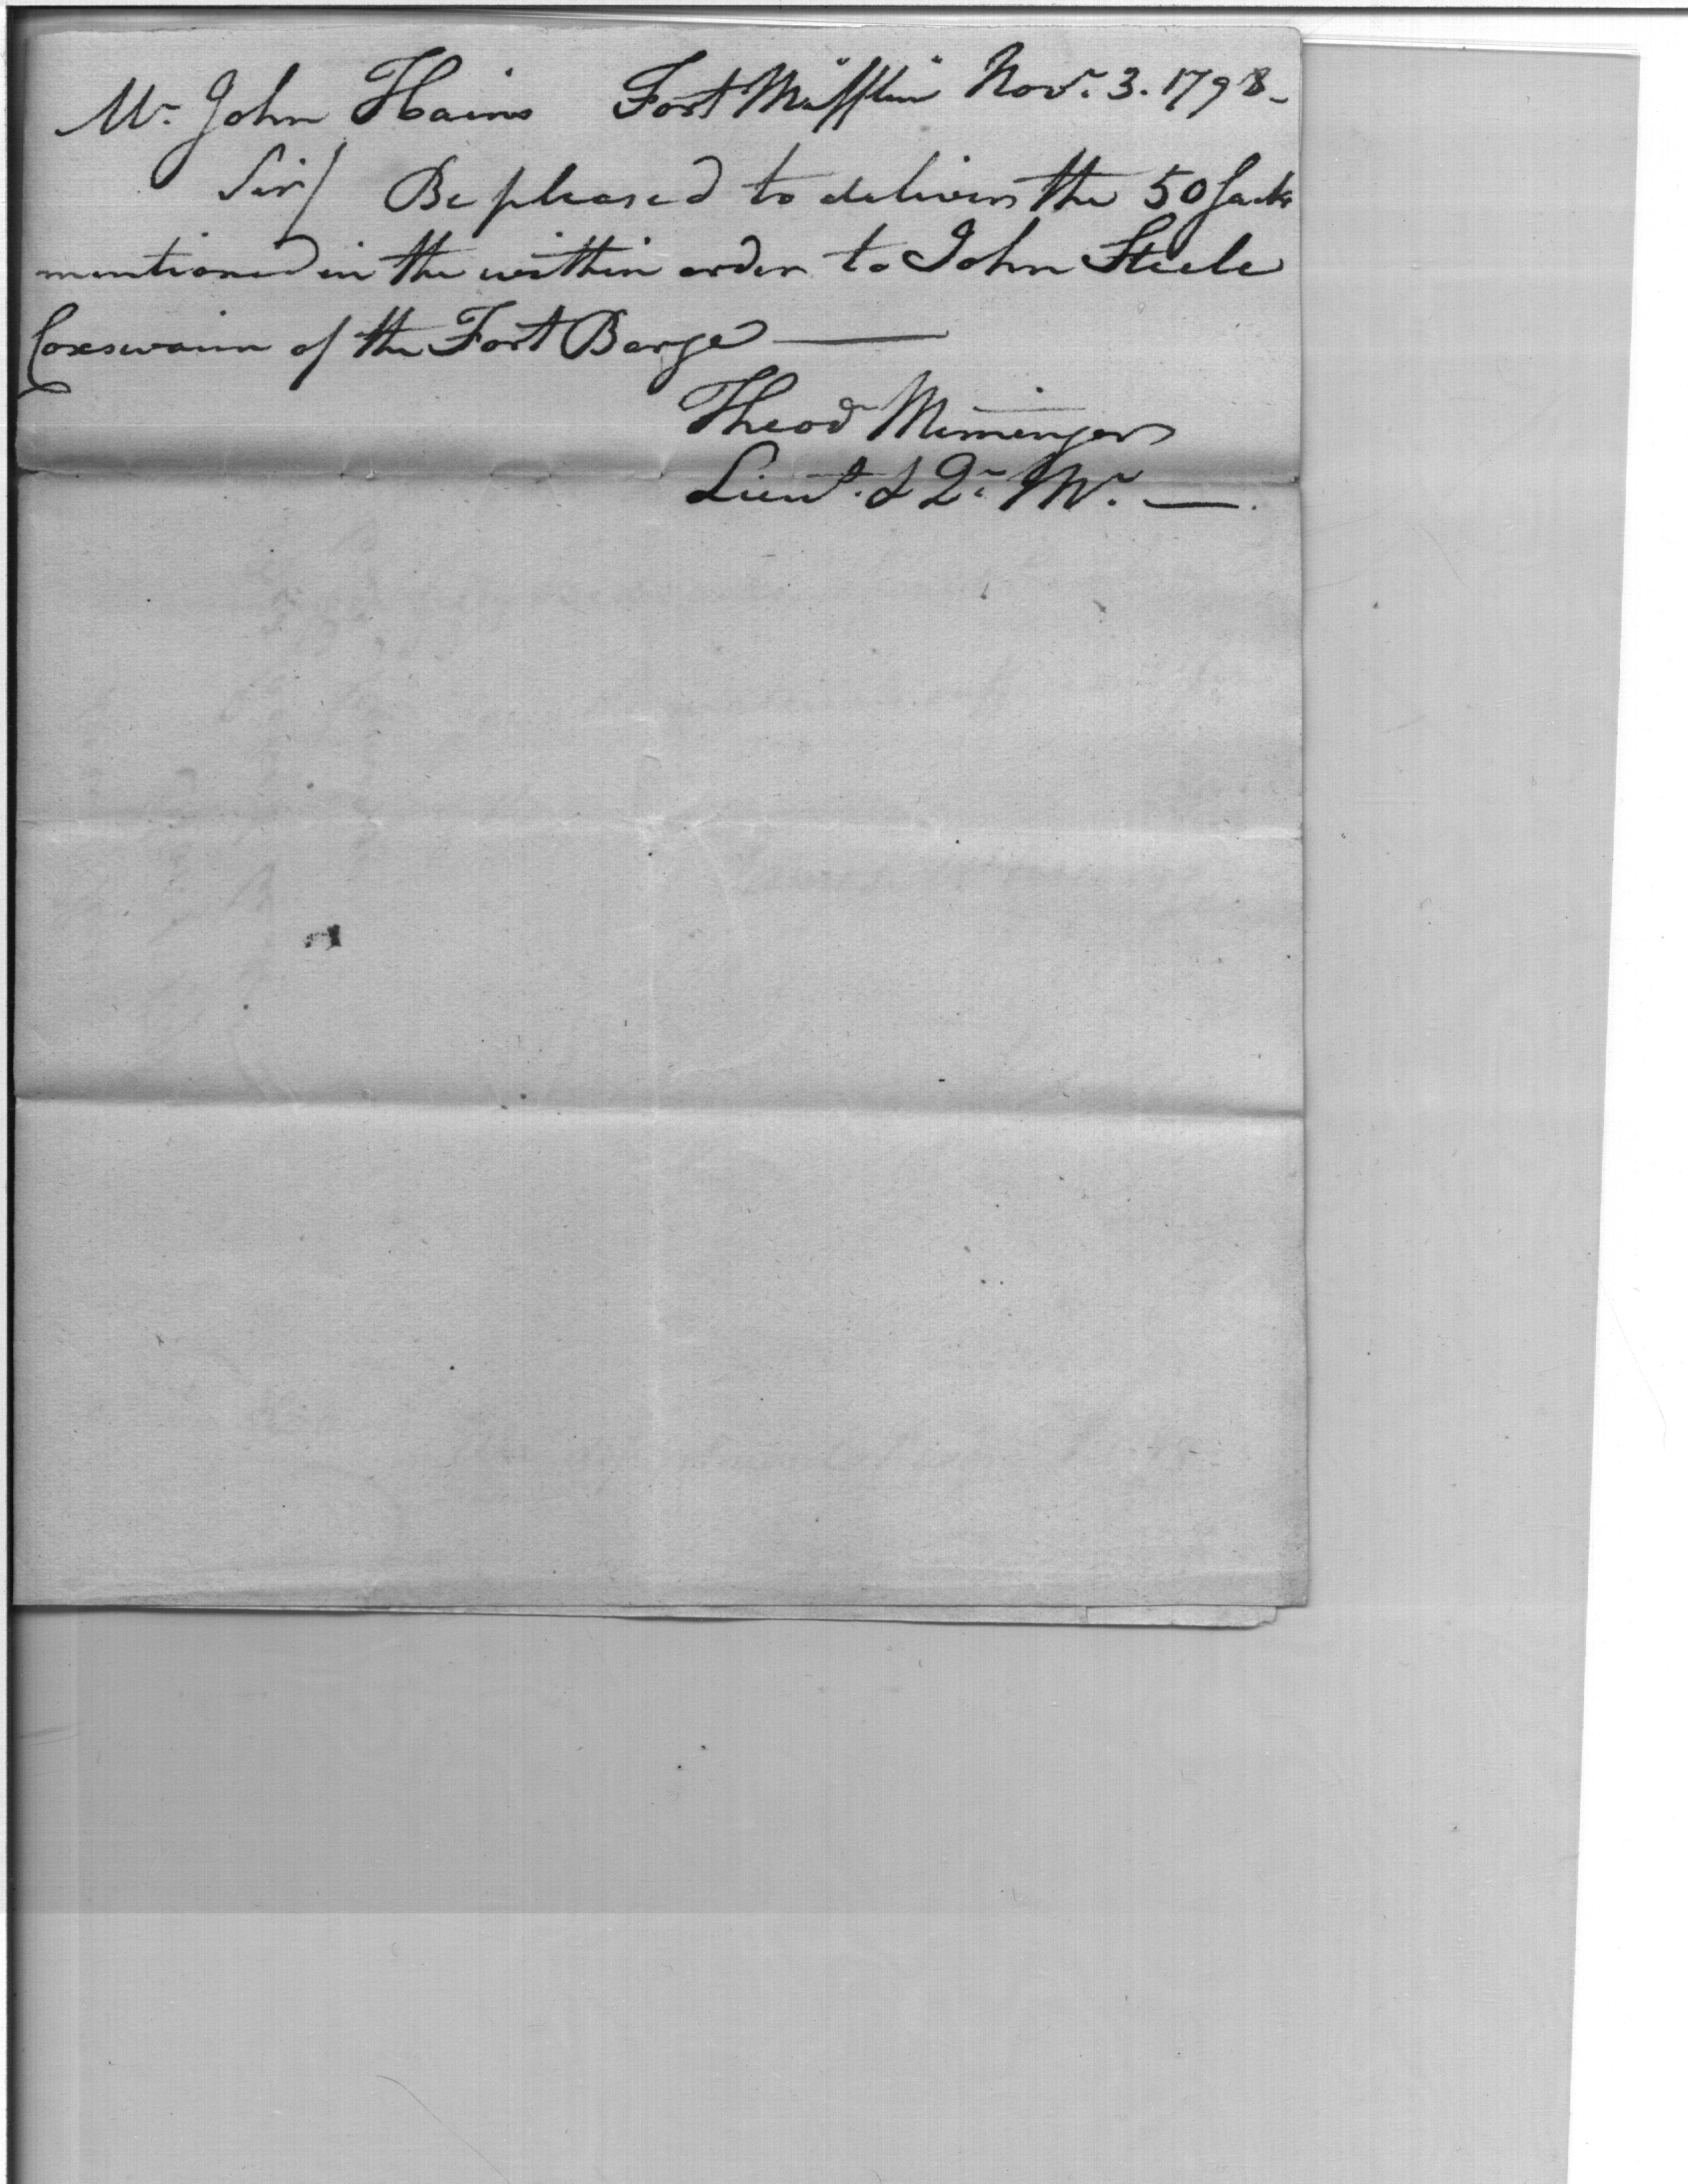 Mr. John Hains Fort Mifflin Novr. 3. 1798 -
Sir/ Be pleased to deliver the 50 Sacks
mentioned in the within order to John Steele
Coxswain of the Fort Barge —
Theod Memenger
Lieut. & Qr. Mr. —